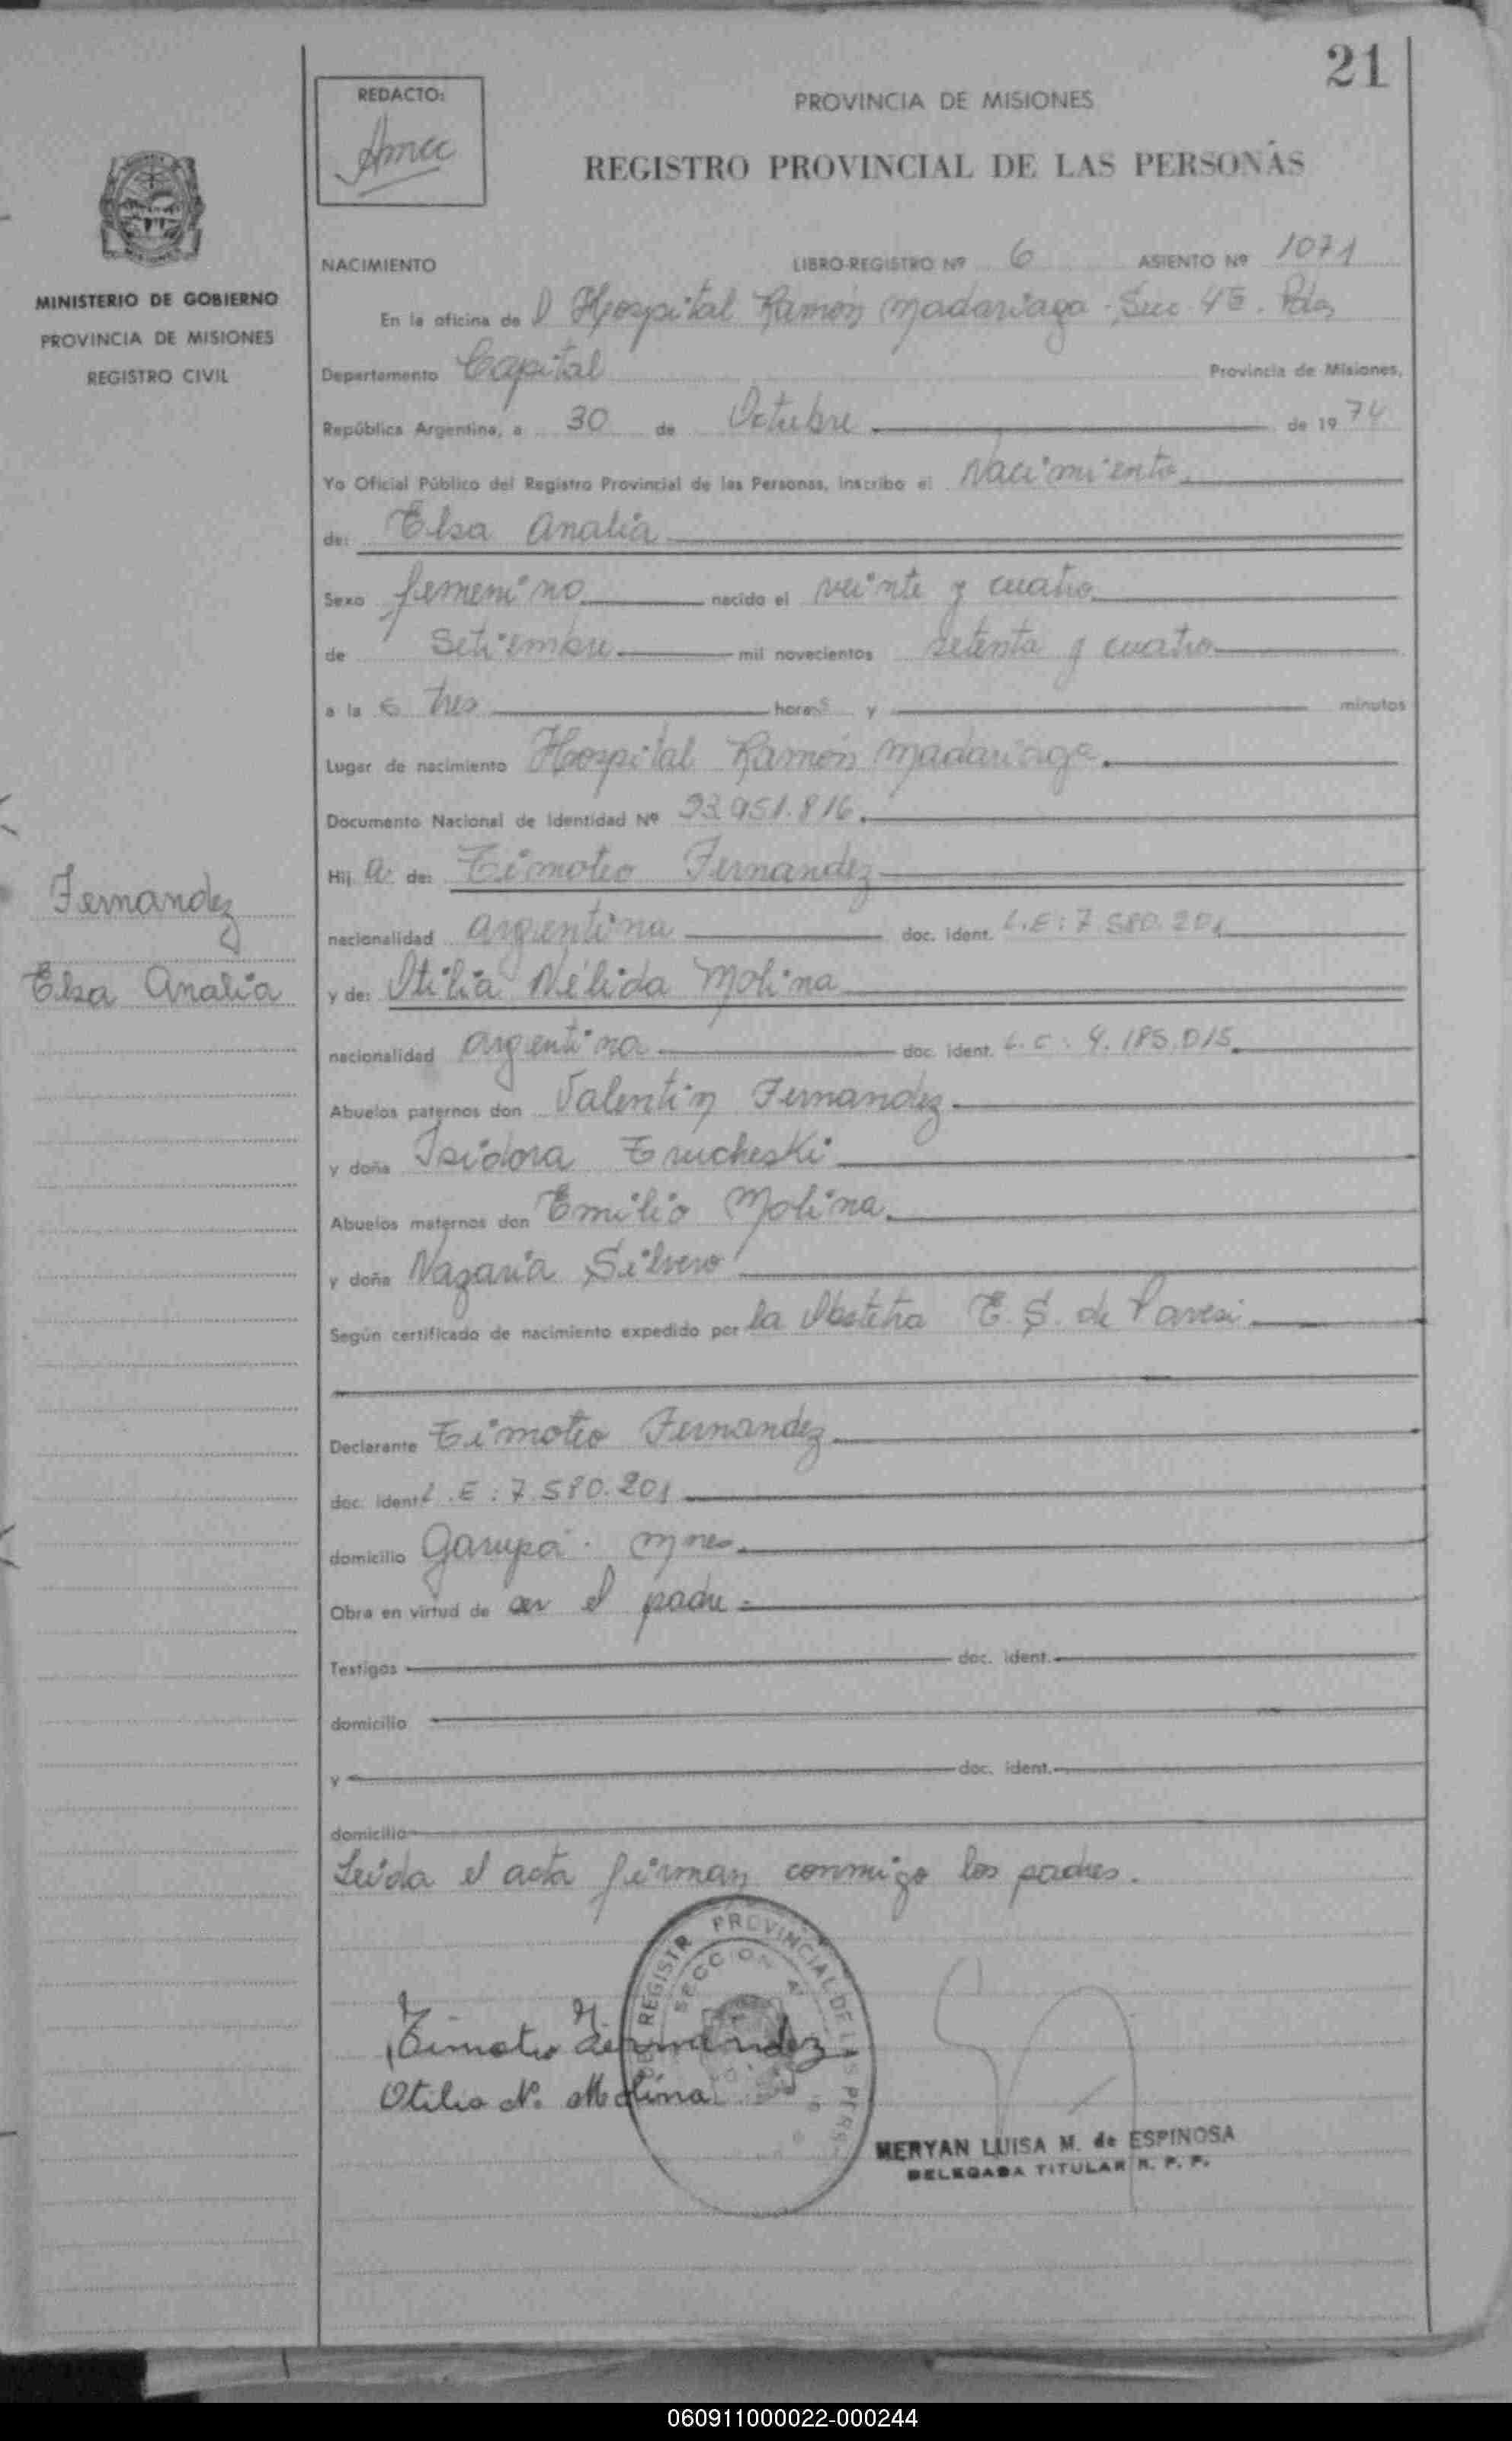 21
REDACTO:
PROVINCIA DE MISIONES
REGISTRO PROVINCIAL DE LAS PERSONAS
NACIMIENTO LIBRO-REGISTRO Nº 6 ASIENTO Nº 1071
MINISTERIO DE GOBIERNO
PROVINCIA DE MISIONES
REGISTRO CIVIL
En la oficina del Hospital Ramón Madariaga - Secc. 4ª. Pdas
Departamento Capital Provincia de Misiones,
República Argentina, a 30 de Octubre de 1974
Yo Oficial Público del Registro Provincial de las Personas, inscribo el Nacimiento
de: Elsa Analia
Sexo femenino nacido el veinte y cuatro
de Setiembre mil novecientos setenta y cuatro
a las tres horas y minutos
Lugar de nacimiento Hospital Ramón Madariaga.
Documento Nacional de Identidad Nº 23.951.816.
Fernandez
Elsa Analia
Hija de: Timoteo Fernandez
nacionalidad argentina doc. ident. L.E: 7.580.201
y de: Otilia Nélida Molina
nacionalidad argentina doc. ident. L.C: 4.185.015.
Abuelos paternos don Valentin Fernandez
y doña Isidora Trucheski
Abuelos maternos don Emilio Molina.
y doña Nazaria Silvero
Según certificado de nacimiento expedido por la Obstetra E. S. de Paresi
Declarante Timoteo Fernandez
doc. ident L.E: 7.580.201
domicilio Garupá. Mnes.
Obra en virtud de ser el padre.
Testigos doc. ident.
domicilio
y doc. ident.
domicilio
Leida el acta firman conmigo los padres.
REGISTR PROVINCIAL DE LAS PERS
SECCION 4
Timoteo Fernandez
Otilia N. Molina
MERYAN LUISA M. de ESPINOSA
DELEGADA TITULAR R. P. P.
060911000022-000244